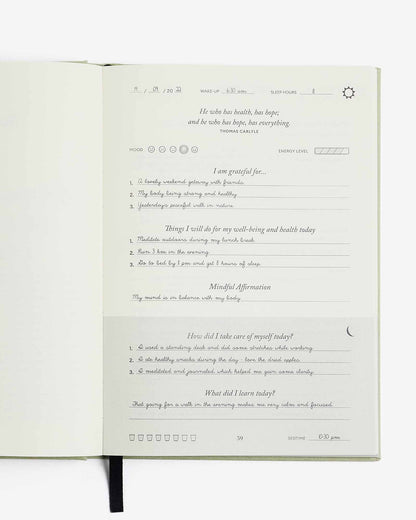 11 / 09 / 20 22 WAKE-UP 6:30 am SLEEP HOURS 8
He who has health, has hope;
and he who has hope, has everything.
THOMAS CARLYLE
MOOD ENERGY LEVEL
I am grateful for...
1. A lovely weekend getaway with friends
2. My body being strong and healthy
3. Yesterdays peaceful walk in nature
Things I will do for my well-being and health today
1. Meditate outdoors during my lunch break
2. Run 1 km in the evening
3. Go to bed by 1 pm and get 8 hours of sleep
Mindful Affirmation
My mind is in balance with my body
How did I take care of myself today?
1. I used a standing desk and did some stretches while working
2. I ate healthy snacks during the day - love the dried apples
3. I meditated and journaled which helped me gain some clarity
What did I learn today?
That going for a walk in the evening makes me very calm and focused
39 BEDTIME 10:30 pm